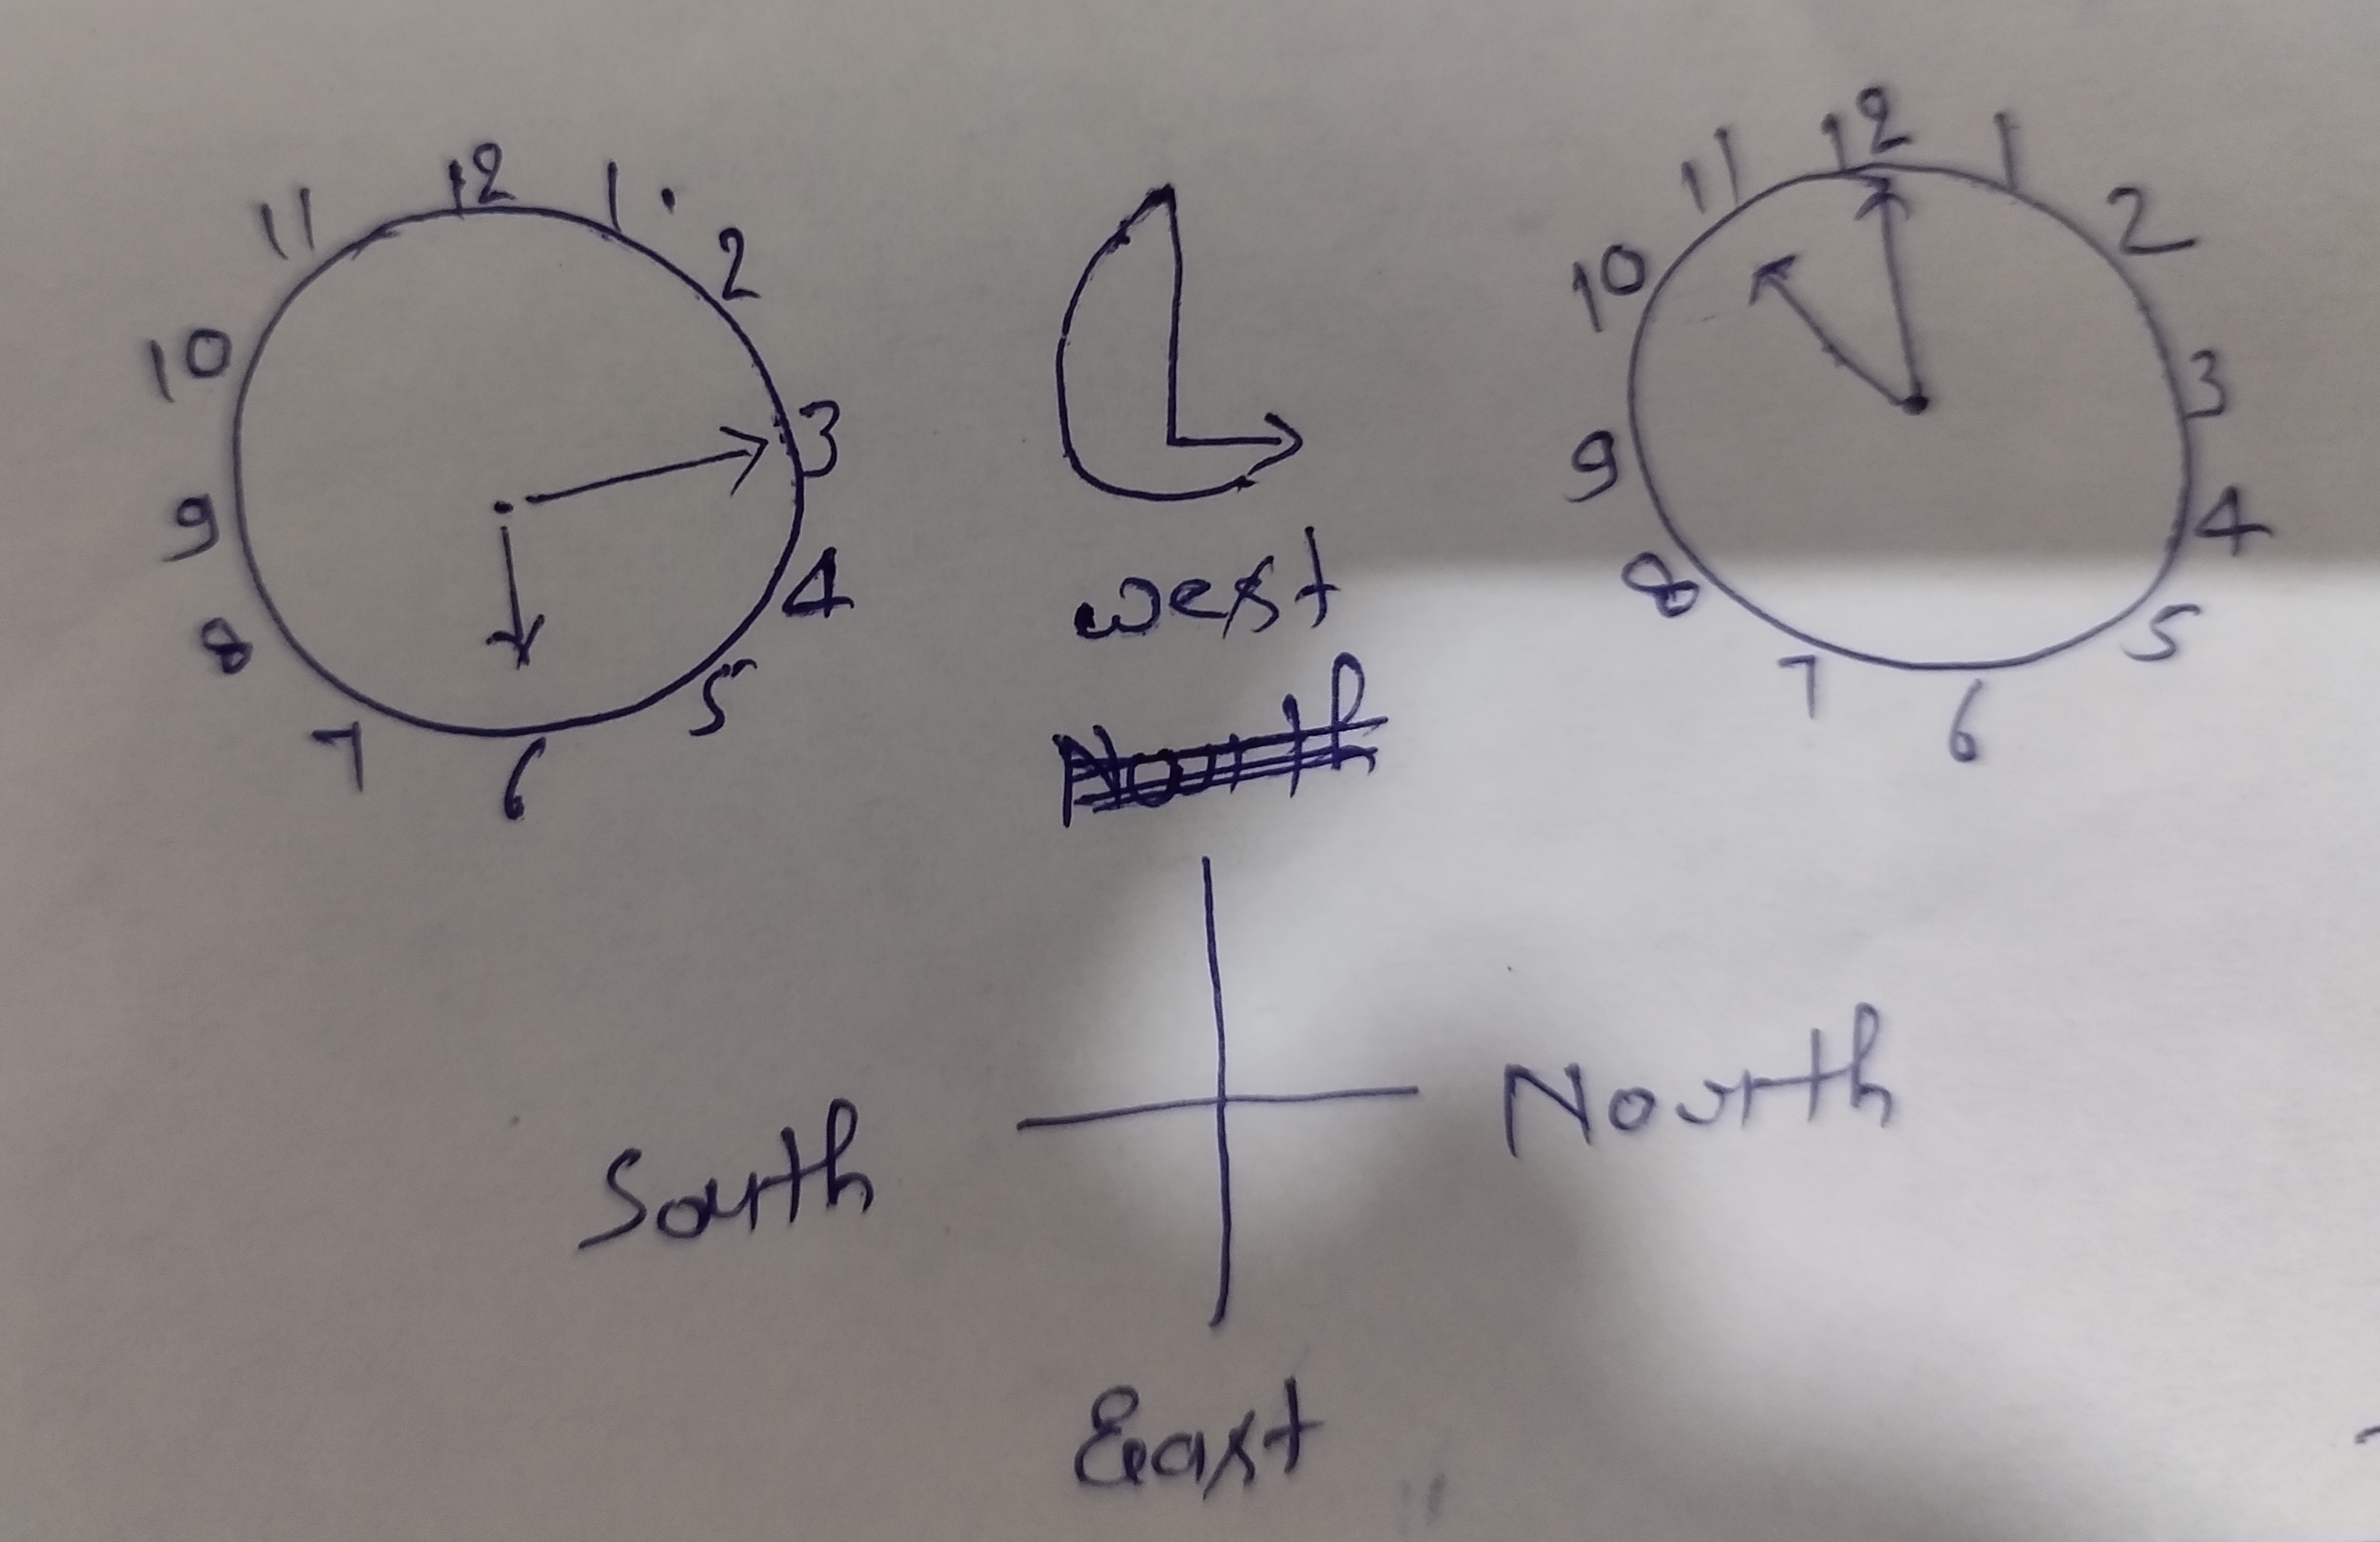 12 1 2 3 4 5 6 7 8 9 10 11
12 1 2 3 4 5 6 7 8 9 10 11
west
North
South
North
East